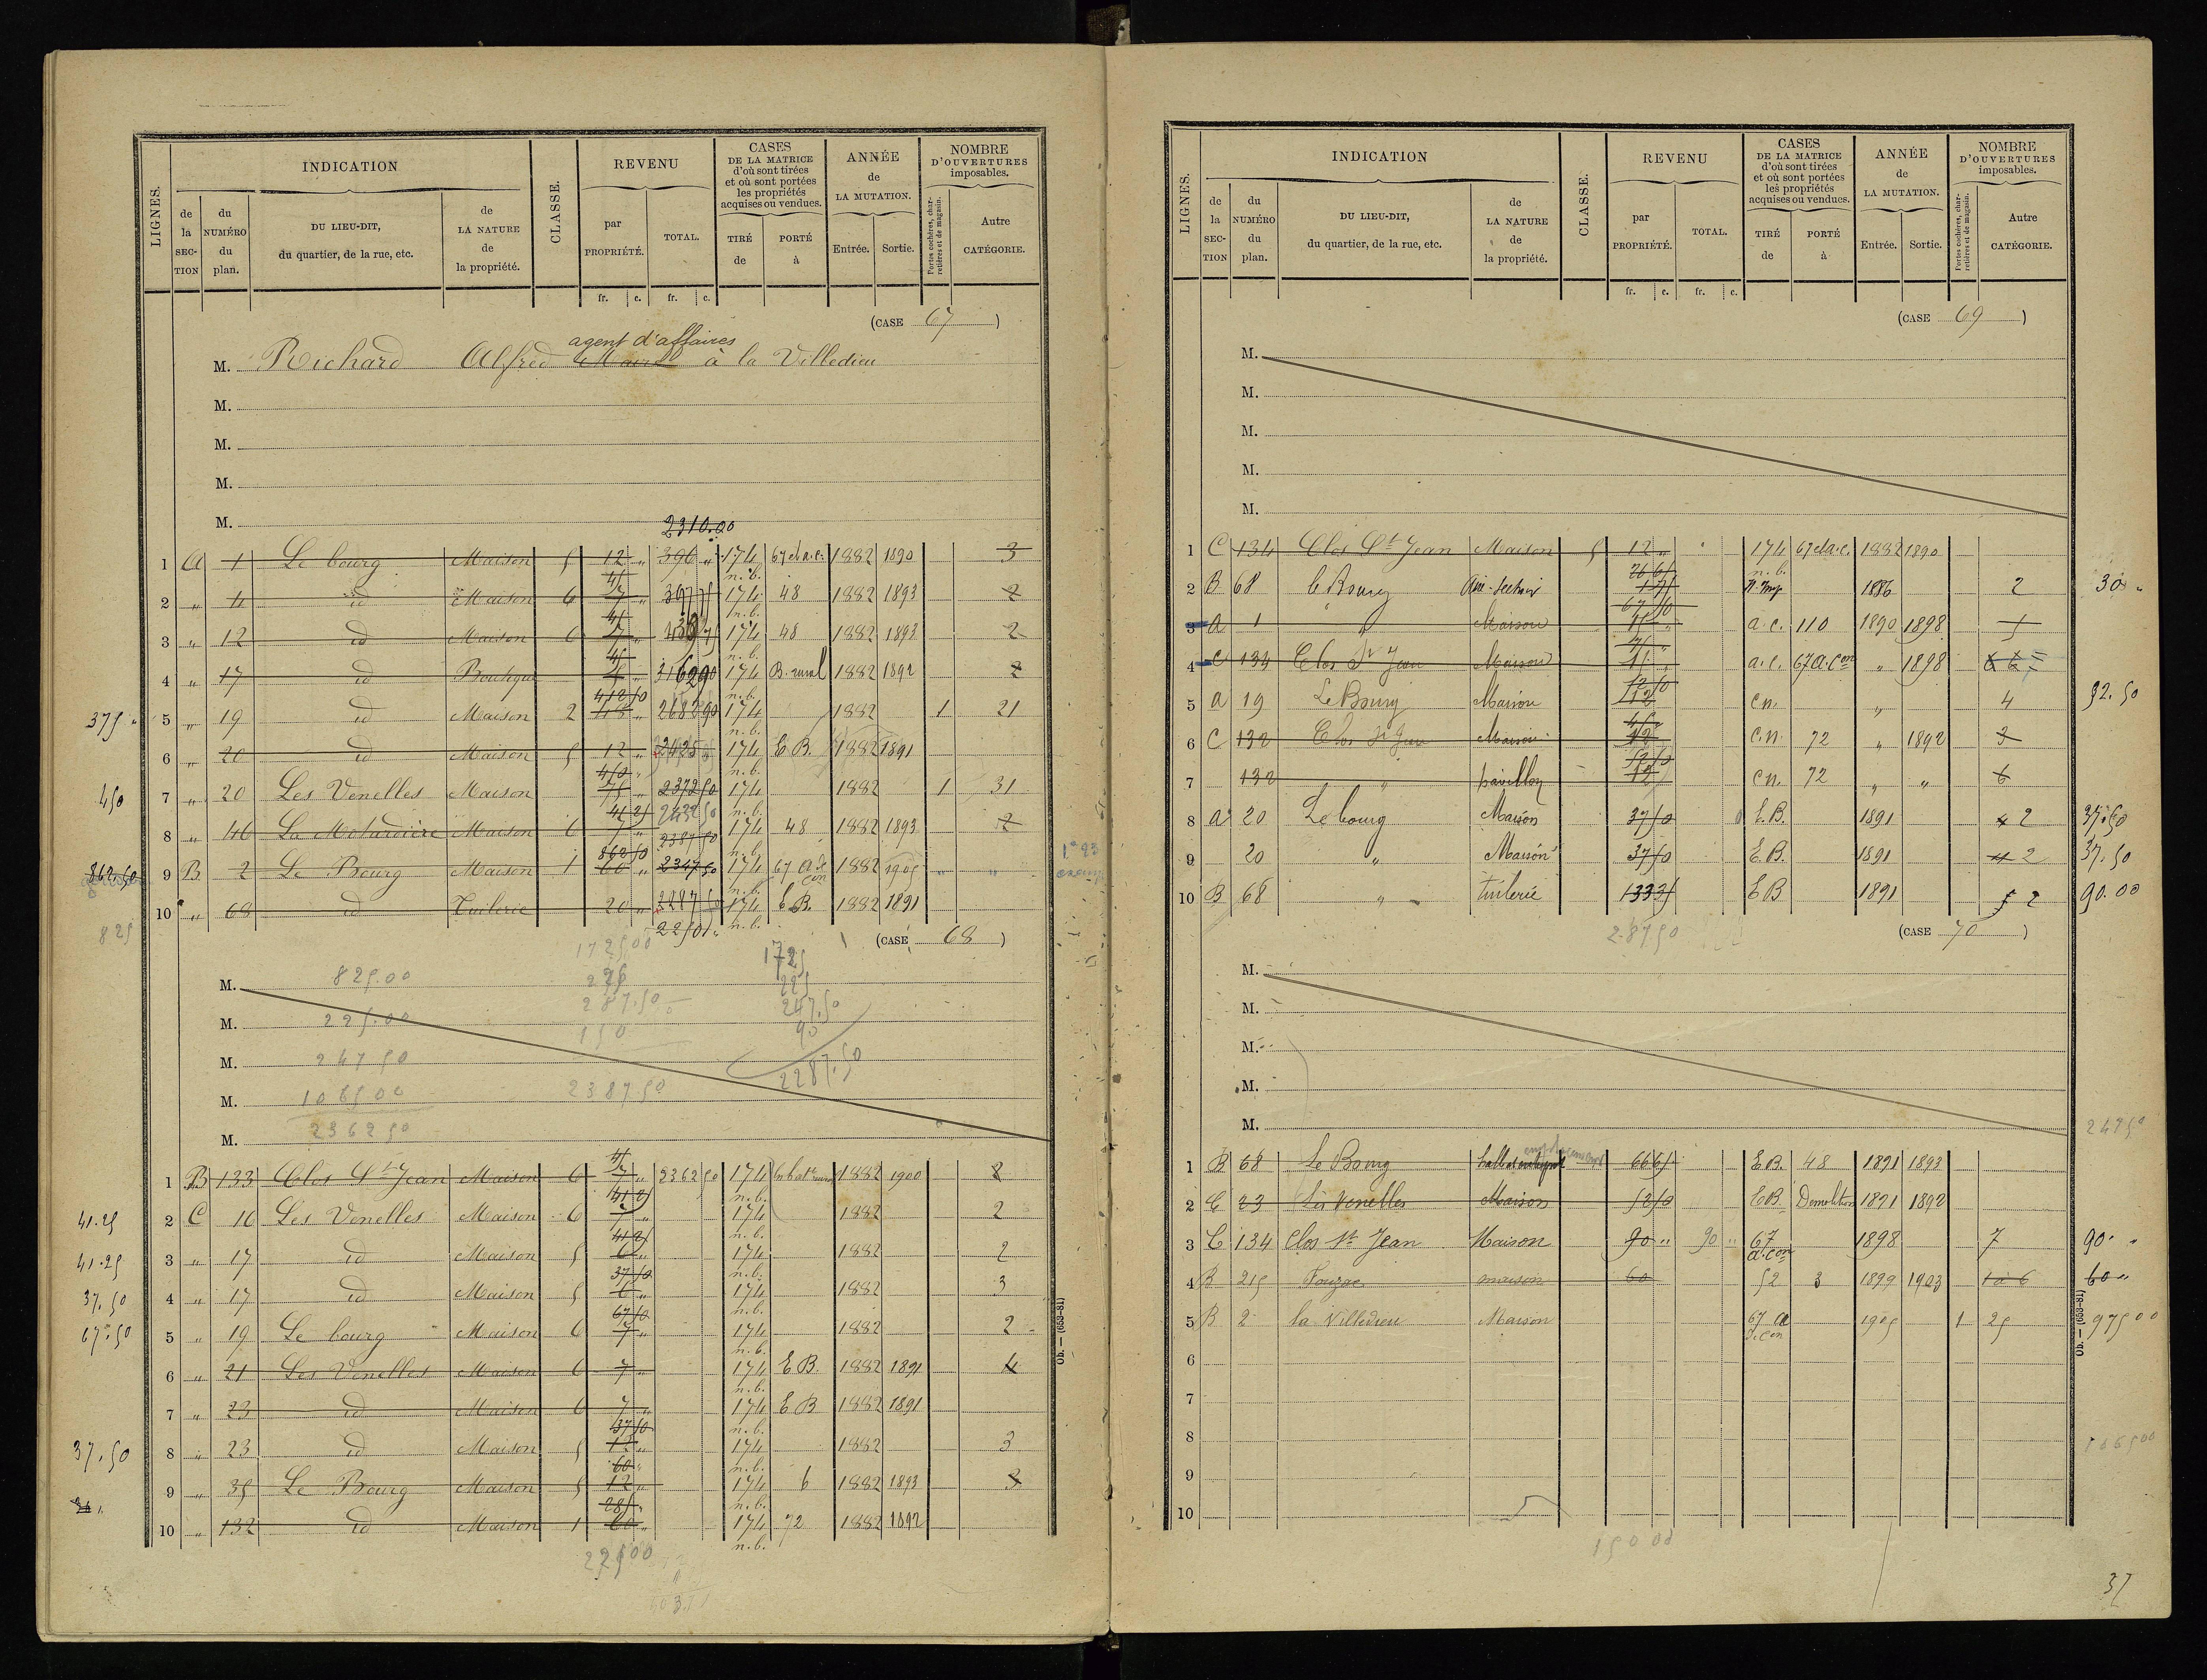 LIGNES.
INDICATION
de la SECTION
du NUMÉRO du plan.
DU LIEU-DIT, du quartier, de la rue, etc.
de LA NATURE de la propriété.
CLASSE.
REVENU
par PROPRIÉTÉ.
TOTAL.
CASES DE LA MATRICE d'où sont tirées et où sont portées les propriétés acquises ou vendues.
TIRÉ de
PORTÉ à
ANNÉE de LA MUTATION.
Entrée.
Sortie.
NOMBRE D'OUVERTURES imposables.
Portes cochères, charretières et de magasin.
Autre CATÉGORIE.
fr. c. fr. c.
(CASE 67)
agent d'affaires
M. Richard Alfred Maire à la Villedieu
M.
M.
M.
M.
2310.00
1 A 1 Le bourg Maison 5 12 " 396 " 174 n.b. 67 et a.c. 1882 1890 3
2 " 4 id Maison 6 45 7 " 174 n.b. 48 1882 1893 2
3 " 12 id Maison 6 45 7 " 174 n.b. 48 1882 1893 2
4 " 17 id Boutique 45 174 n.b. B. rural 1882 1892 2
375 " 5 " 19 id Maison 2 412 50 48 " 2682 90 174 n.b. 1882 1 21
6 " 20 id Maison 5 12 " 2425 174 n.b. E B. 1882 1891
450 7 " 20 Les Venelles Maison 450 75 " 2372 50 174 n.b. 1882 1 31
8 " 46 La Motardière Maison 6 41 25 7 " 2432 50 2387 50 174 n.b. 48 1882 1893 2
862.50 9 B 2 Le Bourg Maison 1 862 50 60 " 2347 50 174 n.b. 67 a.d con 1882 1905 " "
10 " 68 id Tuilerie 20 " 2287 50 174 n.b. E B. 1882 1891
825 2250 "
(CASE 68)
1725 00 1725
M. 825.00 225 225
M. 225.00 287.50 247.50
M. 247 50 150 90
M. 1065 00 2387 50 2287.50
M. 2362 50
1 B 133 Clos St Jean Maison 6 45 7 " 2362 50 174 n.b. 1882 1900 2
41.25 2 C 16 Les Venelles Maison 6 41 25 7 " 174 n.b. 1882 2
41.25 3 " 17 id Maison 5 41 25 6 " 174 n.b. 1882 2
37.50 4 " 17 id Maison 5 37 50 6 " 174 n.b. 1882 3
67.50 5 " 19 Le bourg Maison 6 67 50 7 " 174 n.b. 1882 2
6 " 21 Les Venelles Maison 6 7 " 174 n.b. E B. 1882 1891 4
7 " 23 id Maison 6 7 " 174 n.b. E B 1882 1891
37.50 8 " 23 id Maison 5 37 50 12 " 174 n.b. 1882 3
9 " 35 Le Bourg Maison 5 60 " 12 " 174 n.b. 6 1882 1893 3
10 " 132 id Maison 1 285 " 60 " 174 n.b. 72 1882 1892
225 00
Ob. — (653-81)
LIGNES.
INDICATION
de la SECTION
du NUMÉRO du plan.
DU LIEU-DIT, du quartier, de la rue, etc.
de LA NATURE de la propriété.
CLASSE.
REVENU
par PROPRIÉTÉ.
TOTAL.
CASES DE LA MATRICE d'où sont tirées et où sont portées les propriétés acquises ou vendues.
TIRÉ de
PORTÉ à
ANNÉE de LA MUTATION.
Entrée.
Sortie.
NOMBRE D'OUVERTURES imposables.
Portes cochères, charretières et de magasin.
Autre CATÉGORIE.
fr. c. fr. c.
(CASE 69)
M.
M.
M.
M.
M.
1 C 134 Clos St Jean Maison 5 12 " 174 n.b. 67 et a.c. 1882 1890
2 B 68 le Bourg 1886 2 30 "
3 A 1 " Maison 67 50 15 " a.c. 110 1890 1898 5
4 C 134 Clos St Jean Maison 75 " a.c. 67 a.con " 1898
5 A 19 Le Bourg Maison c.n. " 4 32.50
6 C 132 Clos St Jean Maison 45 " 12 c.n. 72 " 1892 3
7 132 " pavillon 52 50 12 c.n. 72 " " 6
8 A 20 Le bourg Maison 37 50 E.B. 1891 4 2 37.50
9 20 " Maison 37 50 E.B. 1891 4 2 37.50
10 B 68 " tuilerie 133 35 E B 1891 5 2 90.00
287 50
(CASE 70)
M.
M.
M.
M.
M.
247 50
emplacement
1 B 68 Le Bourg 66 65 E B. 48 1891 1893
2 C 23 Les Venelles Maison 52 50 E B. Démolition 1891 1892
3 C 134 Clos St Jean Maison 90 " 90 " 67 a.con 1898 7 90 "
4 B 215 maison 60 52 3 1899 1903 60 "
5 B 2 la Villedieu Maison 67 1905 1 25 975 00
6
7
8 1065 00
9
10
150 00
Ob. — (653-81)
37